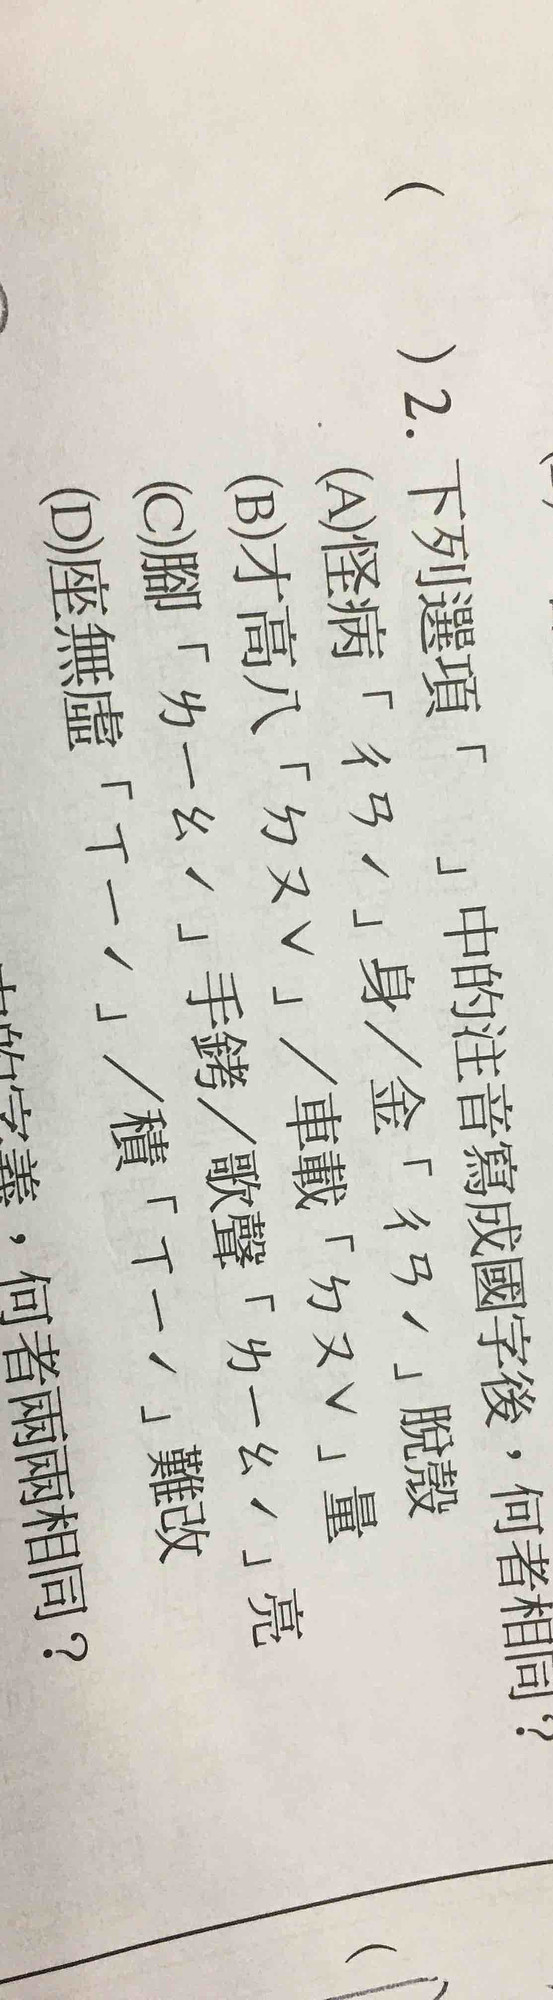 ( )2.下列選項「 」中的注音寫成國字後，何者相同？
(A)怪病「ㄔㄢˊ」身／金「ㄔㄢˊ」脫殼
(B)才高八「ㄉㄡˇ」／車載「ㄉㄡˇ」量
(C)腳「ㄌㄧㄠˊ」手銬／歌聲「ㄌㄧㄠˊ」亮
(D)座無虛「ㄒㄧˊ」／積「ㄒㄧˊ」難改
中的字義，何者兩兩相同？